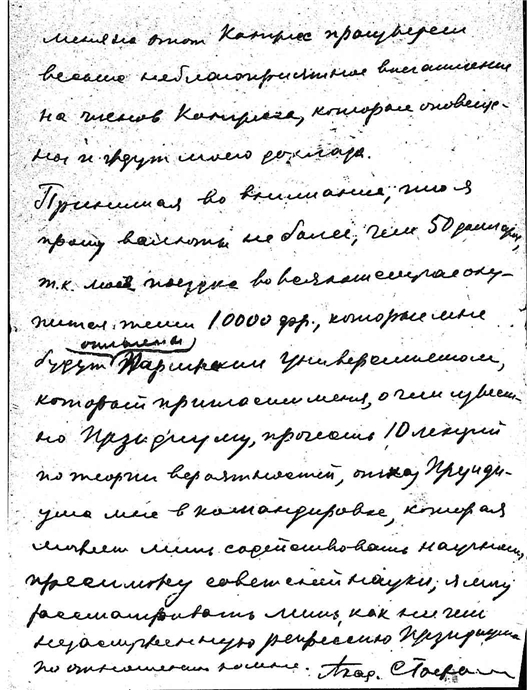 меня на этот Конгресс произведет
весьма неблагоприятное впечатление
на членов Конгресса, которые оповеще-
ны и ждут моего доклада.
Принимая во внимание, что я
прошу валюты не более, чем 50 долларов,
т.к. моя поездка во всяком случае оку-
пится теми 10000 фр., которые мне
будут оплачены Парижским Университетом,
который пригласил меня, о чем извест-
но Президиуму, прочесть 10 лекций
по теории вероятностей, отказ Президи-
ума мне в командировке, которая
может лишь содействовать научному
престижу советской науки, я могу
рассматривать лишь, как ни чем
незаслуженную репрессию Президиума
по отношению ко мне. Акад.